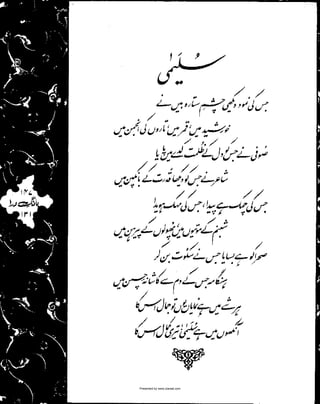 سلیمیٰ
جس کی نمود دیکھی چشمِ ستارہ بیں نے
خورشید میں، قمر میں، تاروں کی انجمن میں
صوفی نے جس کو دل کے ظلمت کدے میں پایا
شاعر نے جس کو دیکھا قدرت کے بانکپن میں
جس کی چمک ہے پیدا، جس کی مہک ہویدا
شبنم کے موتیوں میں، پھولوں کے پیرہن میں
صحرا کو ہے بسایا جس نے سکوت بن کر
ہنگامہ جس کے دم سے کاشانۂ چمن میں
ہر شے میں ہے نمایاں یوں تو جمال اس کا
آنکھوں میں ہے سلیمیٰ تیری کمال اس کا
۱۲۷
بانگِ درا
۱۳۱
Presented by www.ziaraat.com